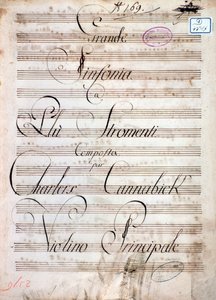 № 169.
Grande
Sinfonia
a
Più Stromenti
Composta
per
Charlers Cannabick
Violino Principale